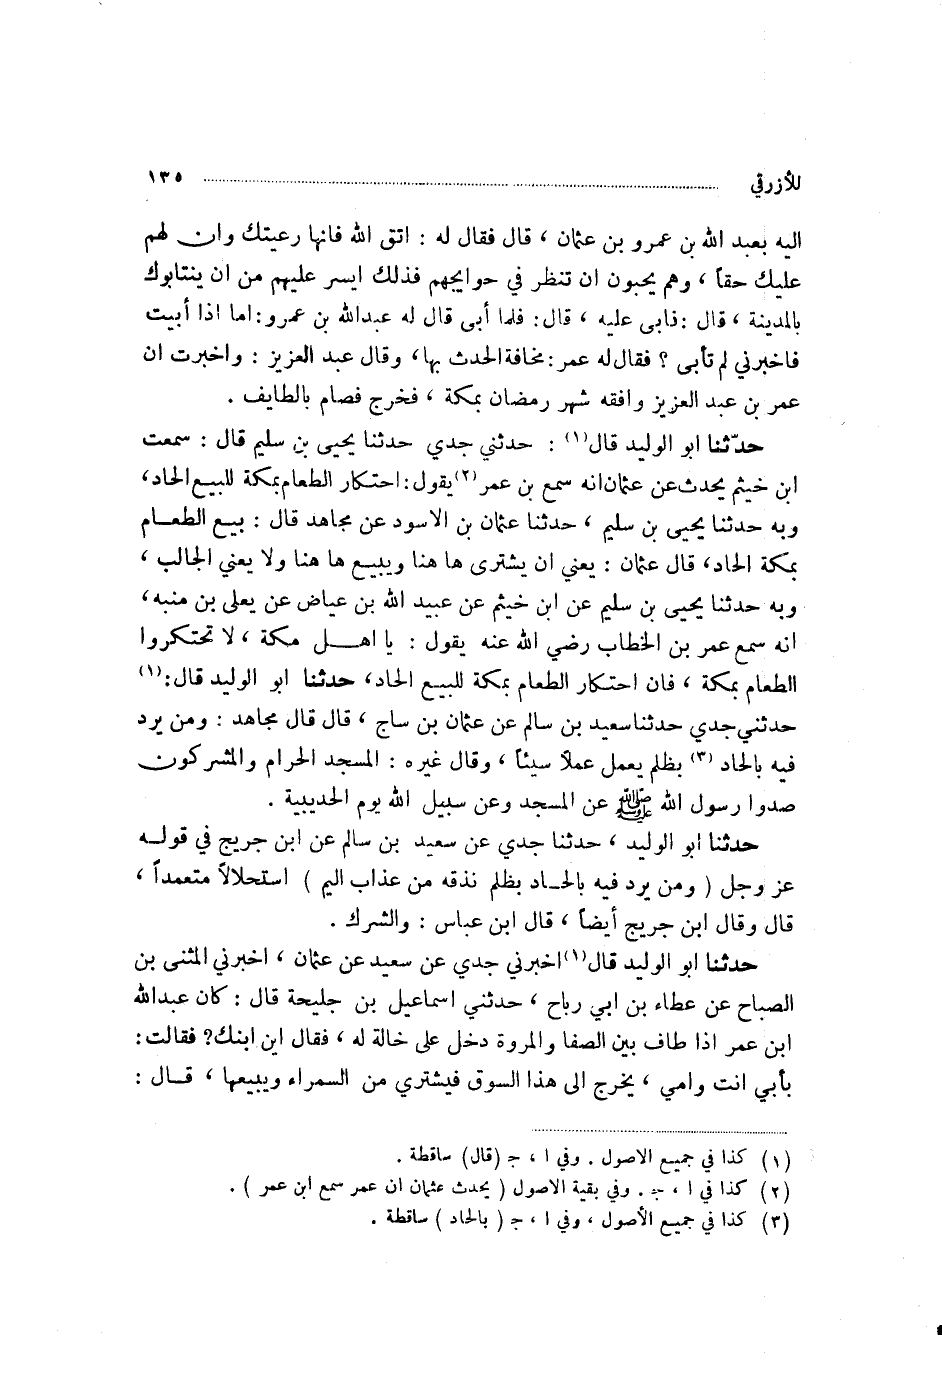 للأزرقي ........................................ ١٣٥
اليه بعبد الله بن عمرو بن عثمان ، قال فقال له : اتق الله فانها رعيتك وان لهم
عليك حقاً ، وهم يحبون ان تنظر في حوايجهم فذلك ايسر عليهم من ان ينتابوك
بالمدينة ، قال : فابى عليه ، قال : فلما أبى قال له عبدالله بن عمرو : اما اذا أبيت
فاخبرني لم تأبى ؟ فقال له عمر : مخافة الحدث بها ، وقال عبد العزيز : واخبرت ان
عمر بن عبد العزيز وافقه شهر رمضان بمكة ، فخرج فصام بالطايف .
حدّثنا ابو الوليد قال(١) : حدثني جدي حدثنا يحيى بن سليم قال : سمعت
ابن خيثم يحدث عن عثمان انه سمع بن عمر(٢) يقول : احتكار الطعام بمكة للبيع الحاد ،
وبه حدثنا يحيى بن سليم ، حدثنا عثمان بن الاسود عن مجاهد قال : بيع الطعام
بمكة الحاد ، قال عثمان : يعني ان يشترى ها هنا ويبيع ها هنا ولا يعني الجالب ،
وبه حدثنا يحيى بن سليم عن ابن خيثم عن عبيد الله بن عياض عن يعلى بن منبه ،
انه سمع عمر بن الخطاب رضي الله عنه يقول : يا اهل مكة ، لا تحتكروا
الطعام بمكة ، فان احتكار الطعام بمكة للبيع الحاد ، حدثنا ابو الوليد قال :(١)
حدثني جدي حدثنا سعيد بن سالم عن عثمان بن ساج ، قال قال مجاهد : ومن يرد
فيه بالحاد (٣) بظلم يعمل عملاً سيئاً ، وقال غيره : المسجد الحرام والمشركون
صدوا رسول الله ﷺ عن المسجد وعن سبيل الله يوم الحديبية .
حدثنا ابو الوليد ، حدثنا جدي عن سعيد بن سالم عن ابن جريج في قوله
عز وجل ( ومن يرد فيه بالحاد بظلم نذقه من عذاب اليم ) استحلالاً متعمداً ،
قال وقال ابن جريج أيضاً ، قال ابن عباس : والشرك .
حدثنا ابو الوليد قال(١) اخبرني جدي عن سعيد عن عثمان ، اخبرني المثنى بن
الصباح عن عطاء بن ابي رباح ، حدثني اسماعيل بن جليحة قال : كان عبدالله
ابن عمر اذا طاف بين الصفا والمروة دخل على خالة له ، فقال اين ابنك ؟ فقالت :
بأبي انت وامي ، يخرج الى هذا السوق فيشتري من السمراء ويبيعها ، قال :
(١) كذا في جميع الاصول . وفي ا ، ج (قال) ساقطة .
(٢) كذا في ا ، ج . وفي بقية الاصول ( يحدث عثمان ان عمر سمع ابن عمر ) .
(٣) كذا في جميع الأصول ، وفي ا ، ج ( بالحاد ) ساقطة .